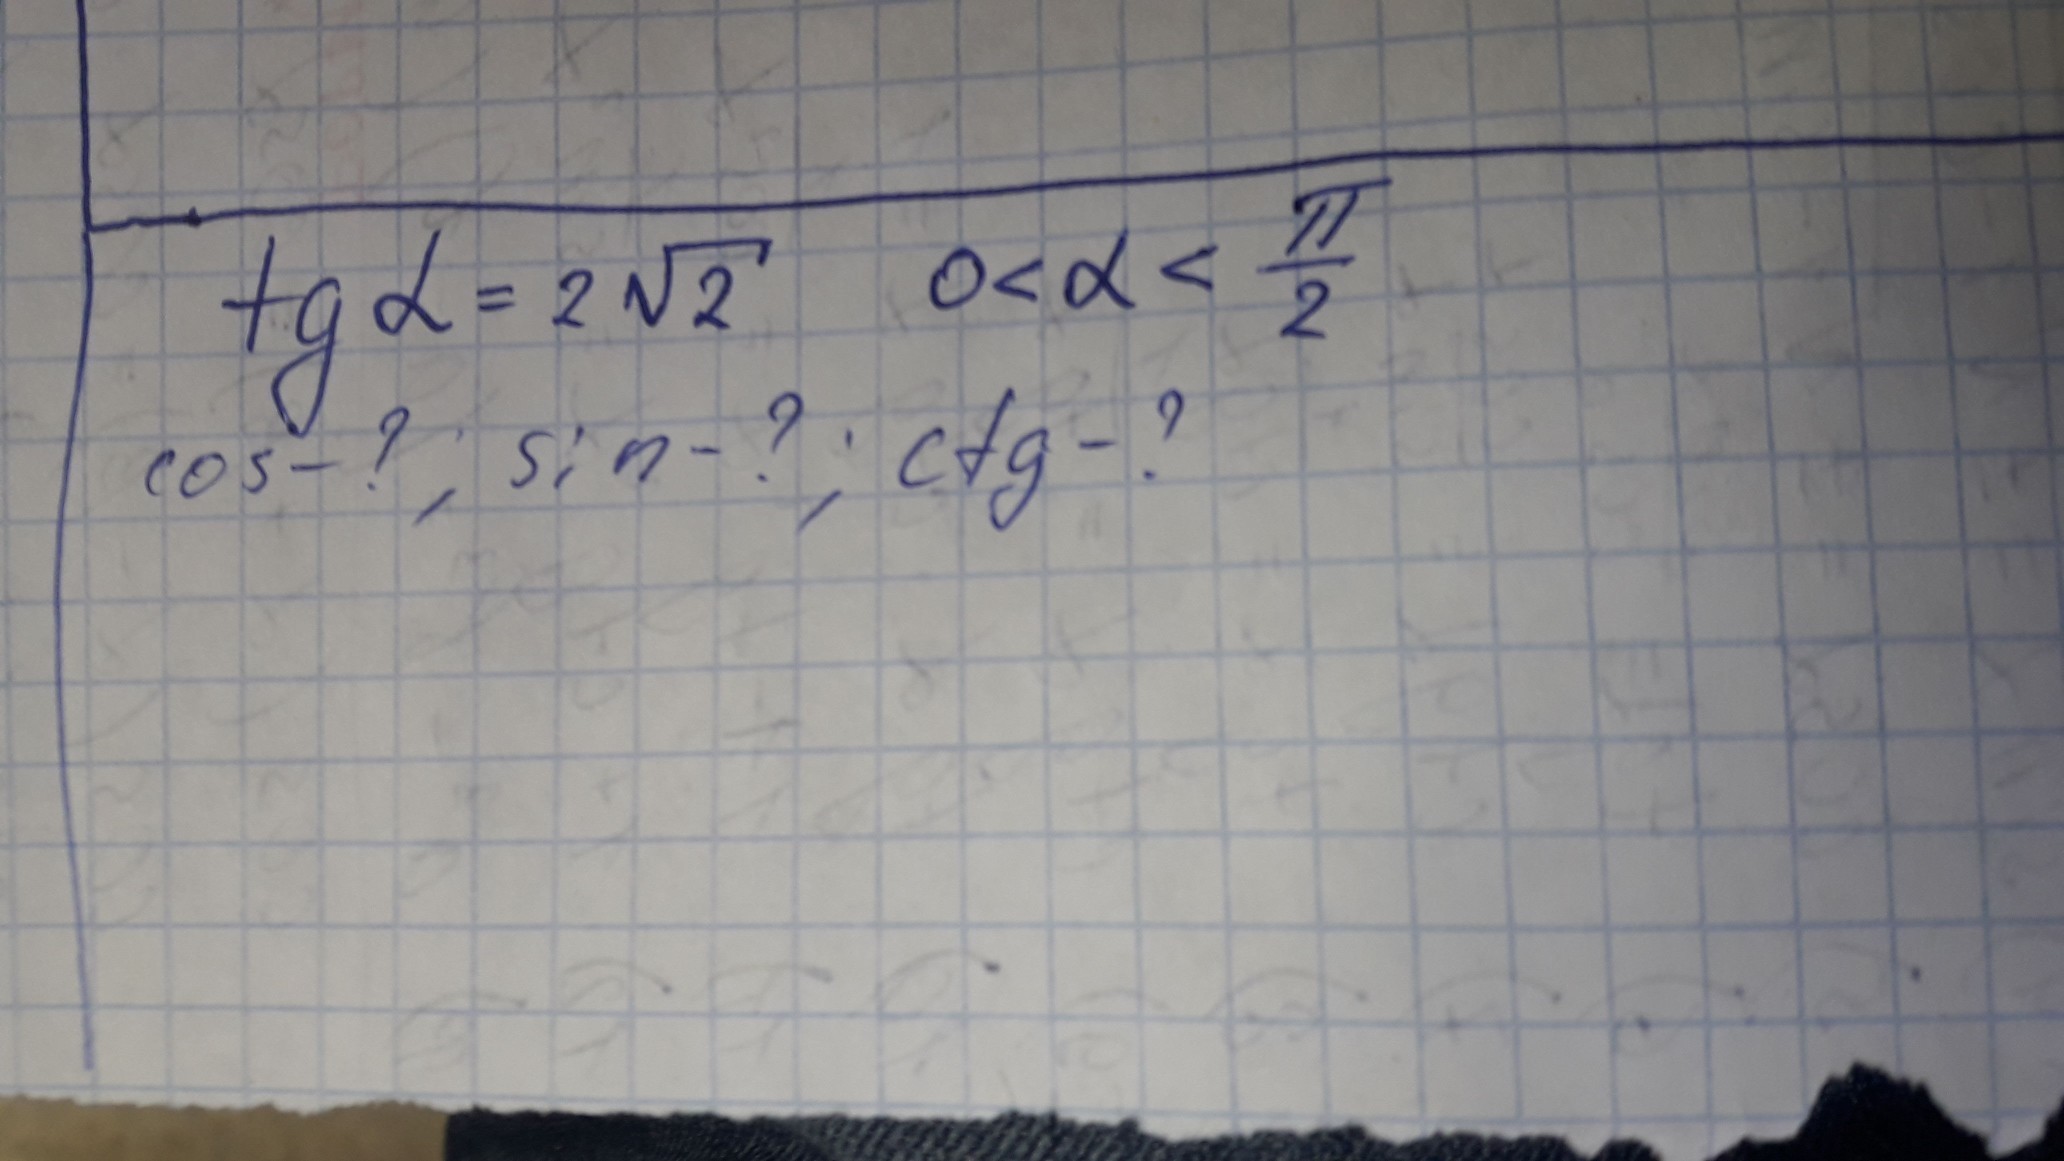 tg α = 2√2 0 < α < π/2
cos - ? ; sin - ? ; ctg - ?